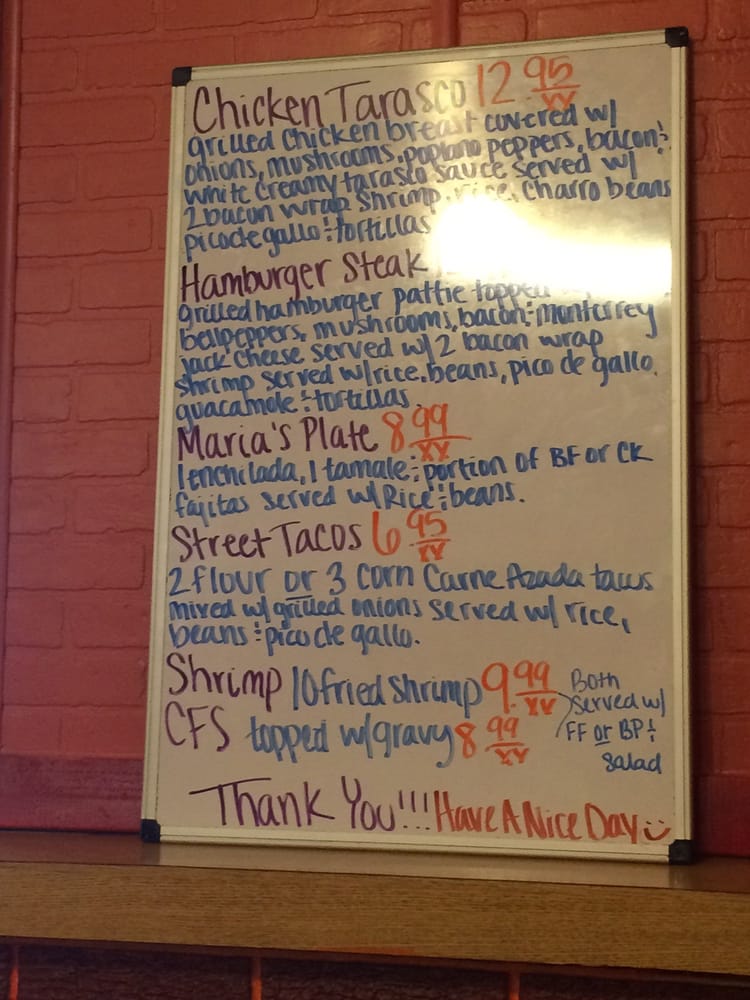 Chicken Tarasco 12 95/xx
grilled chicken breast covered w/
onions, mushrooms, poplano peppers, bacon &
white creamy tarasco sauce served w/
2 bacon wrap shrimp, rice, charro beans
pico de gallo & tortillas
Hamburger Steak
grilled hamburger pattie topped
bellpeppers, mushrooms, bacon & monterrey
jack cheese served w/ 2 bacon wrap
shrimp served w/ rice, beans, pico de gallo,
guacamole & tortillas.
Maria's Plate 8 99/xx
1 enchilada, 1 tamale & portion of BF or CK
fajitas served w/ Rice & beans.
Street Tacos 6 95/xx
2 flour or 3 corn Carne Azada tacos
mixed w/ grilled onions served w/ rice,
beans & pico de gallo.
Shrimp 10 fried shrimp 9.99/xx
CFS topped w/ gravy 8 99/xx
Both
served w/
FF or BP &
Salad
Thank You!!! Have A Nice Day